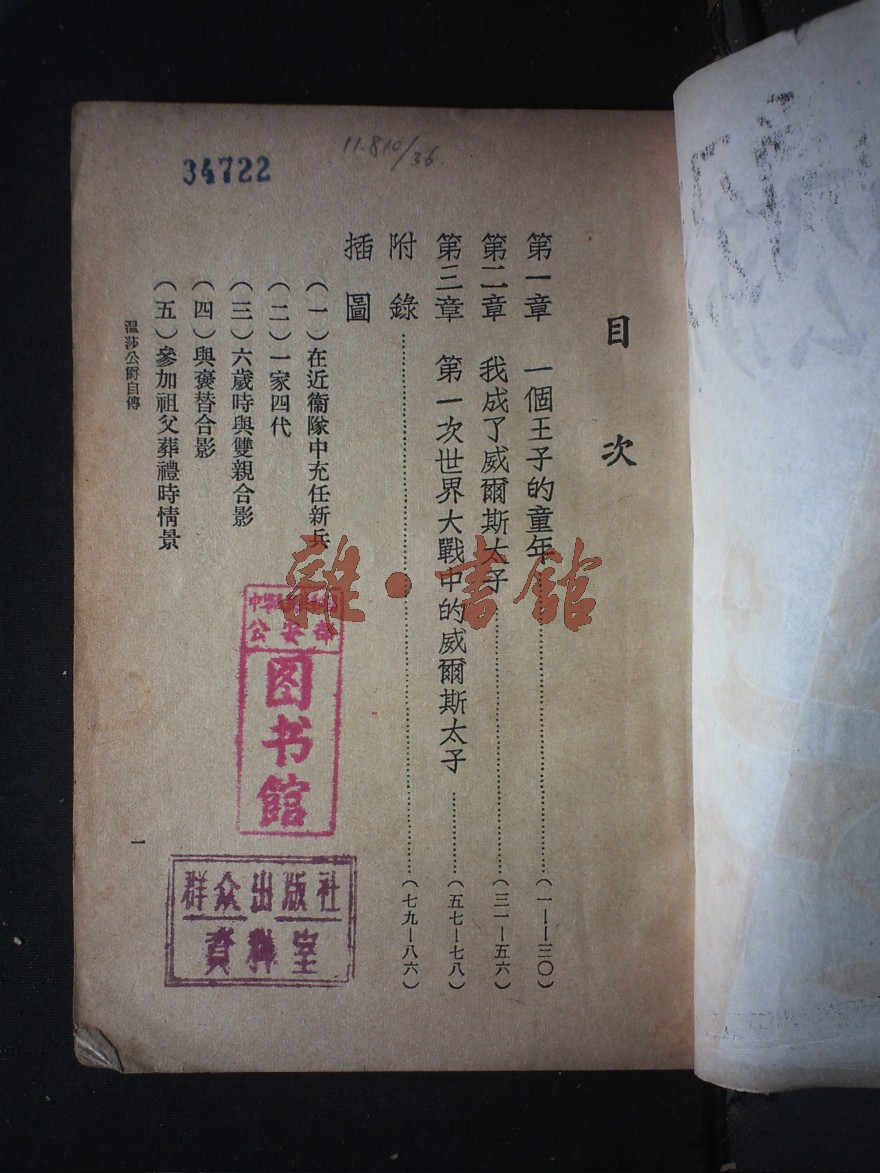 34722
11-810/36
目次
第一章 一個王子的童年……(一——三〇)
第二章 我成了威爾斯太子……(三一—五六)
第三章 第一次世界大戰中的威爾斯太子……(五七—七八)
附錄……(七九—八六)
插圖
(一)在近衞隊中充任新兵
(二)一家四代
(三)六歲時與雙親合影
(四)與褒替合影
(五)參加祖父葬禮時情景
溫莎公爵自傳
一
雜·書館
公安部
图书馆
群众出版社
資料室